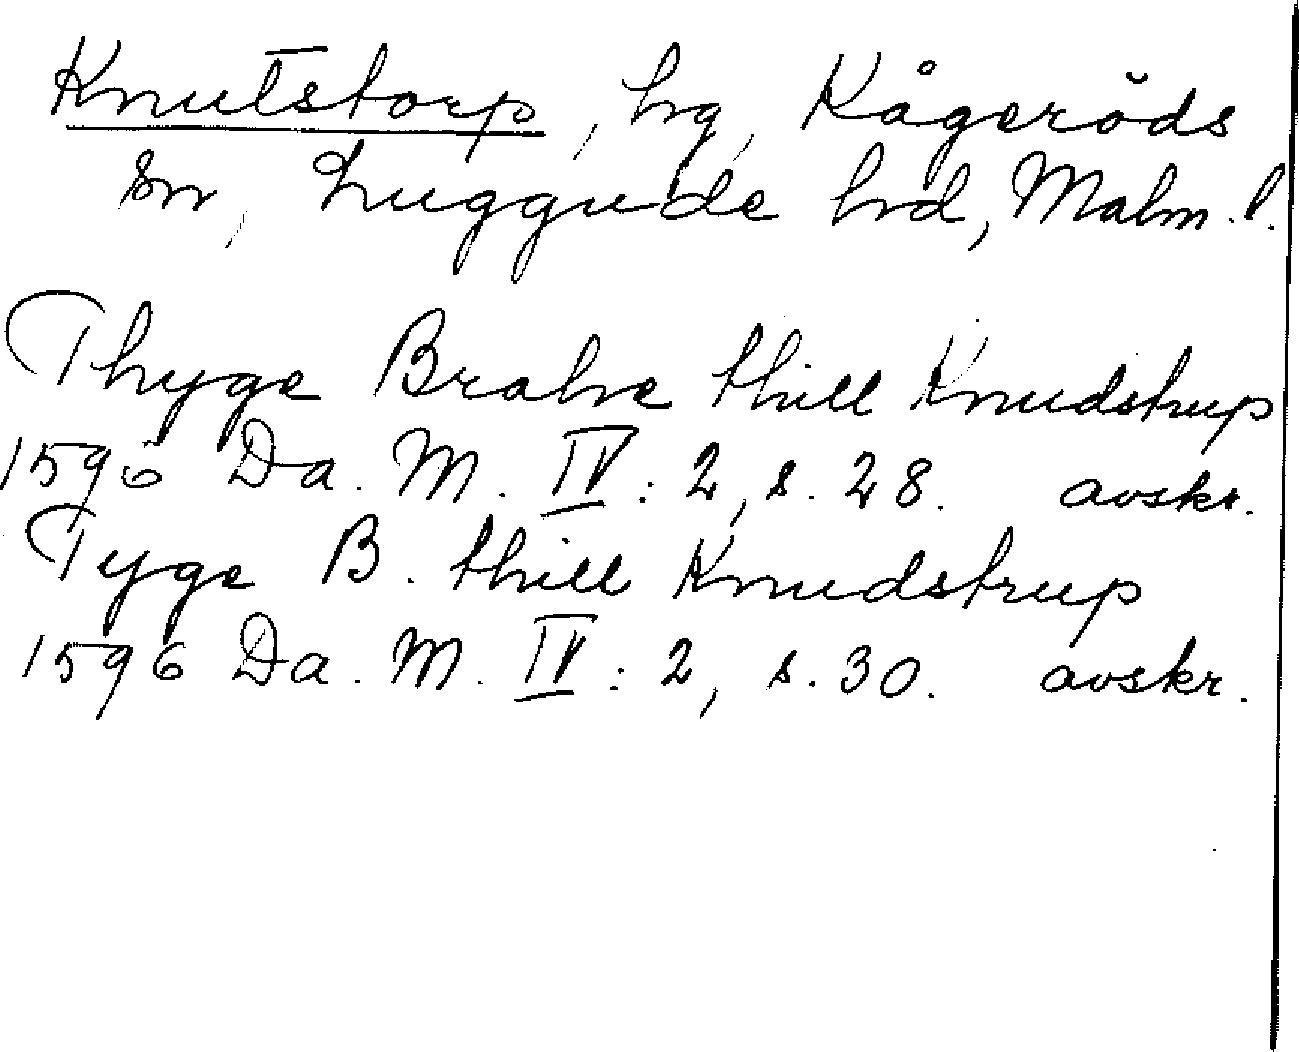 Knutstorp, hg, Kågeröds
sn, Luggude hrd, Malm. l.
Thyge Brahe thill Knudstrup
1596 Da. M. IV: 2, s. 28. avskr.
Tyge B. thill Knudstrup
1596 Da. M. IV: 2, s. 30. avskr.